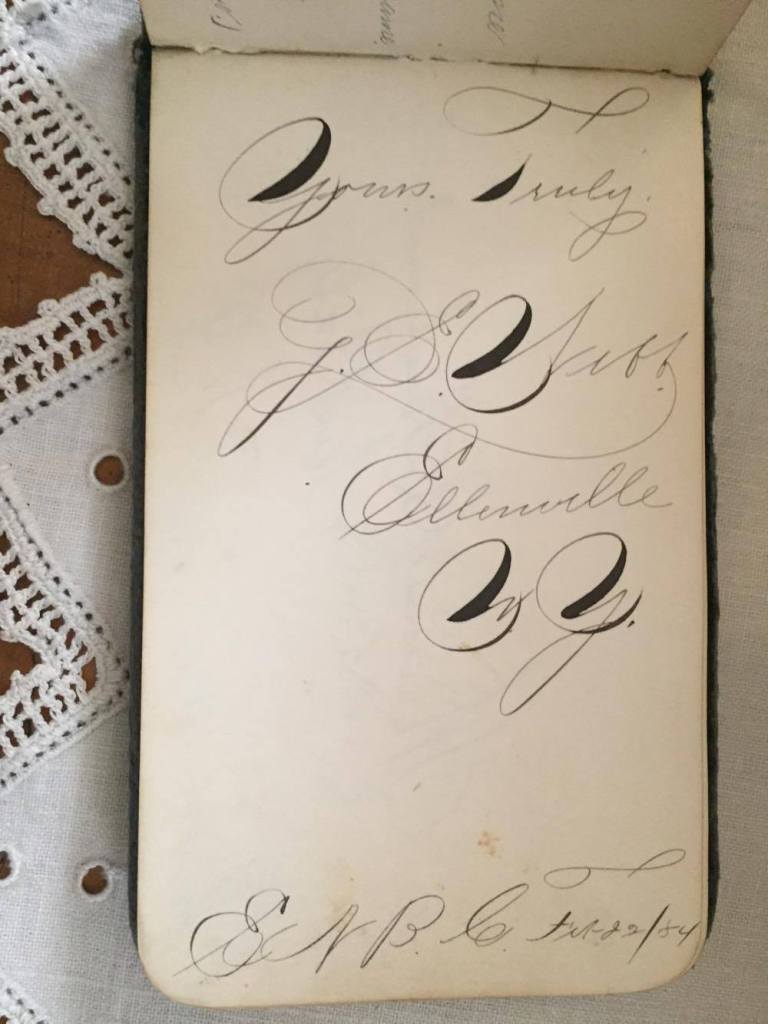 Yours. Truly.
G. E.
Ellenville
N Y.
E N B C. Feb 22/84